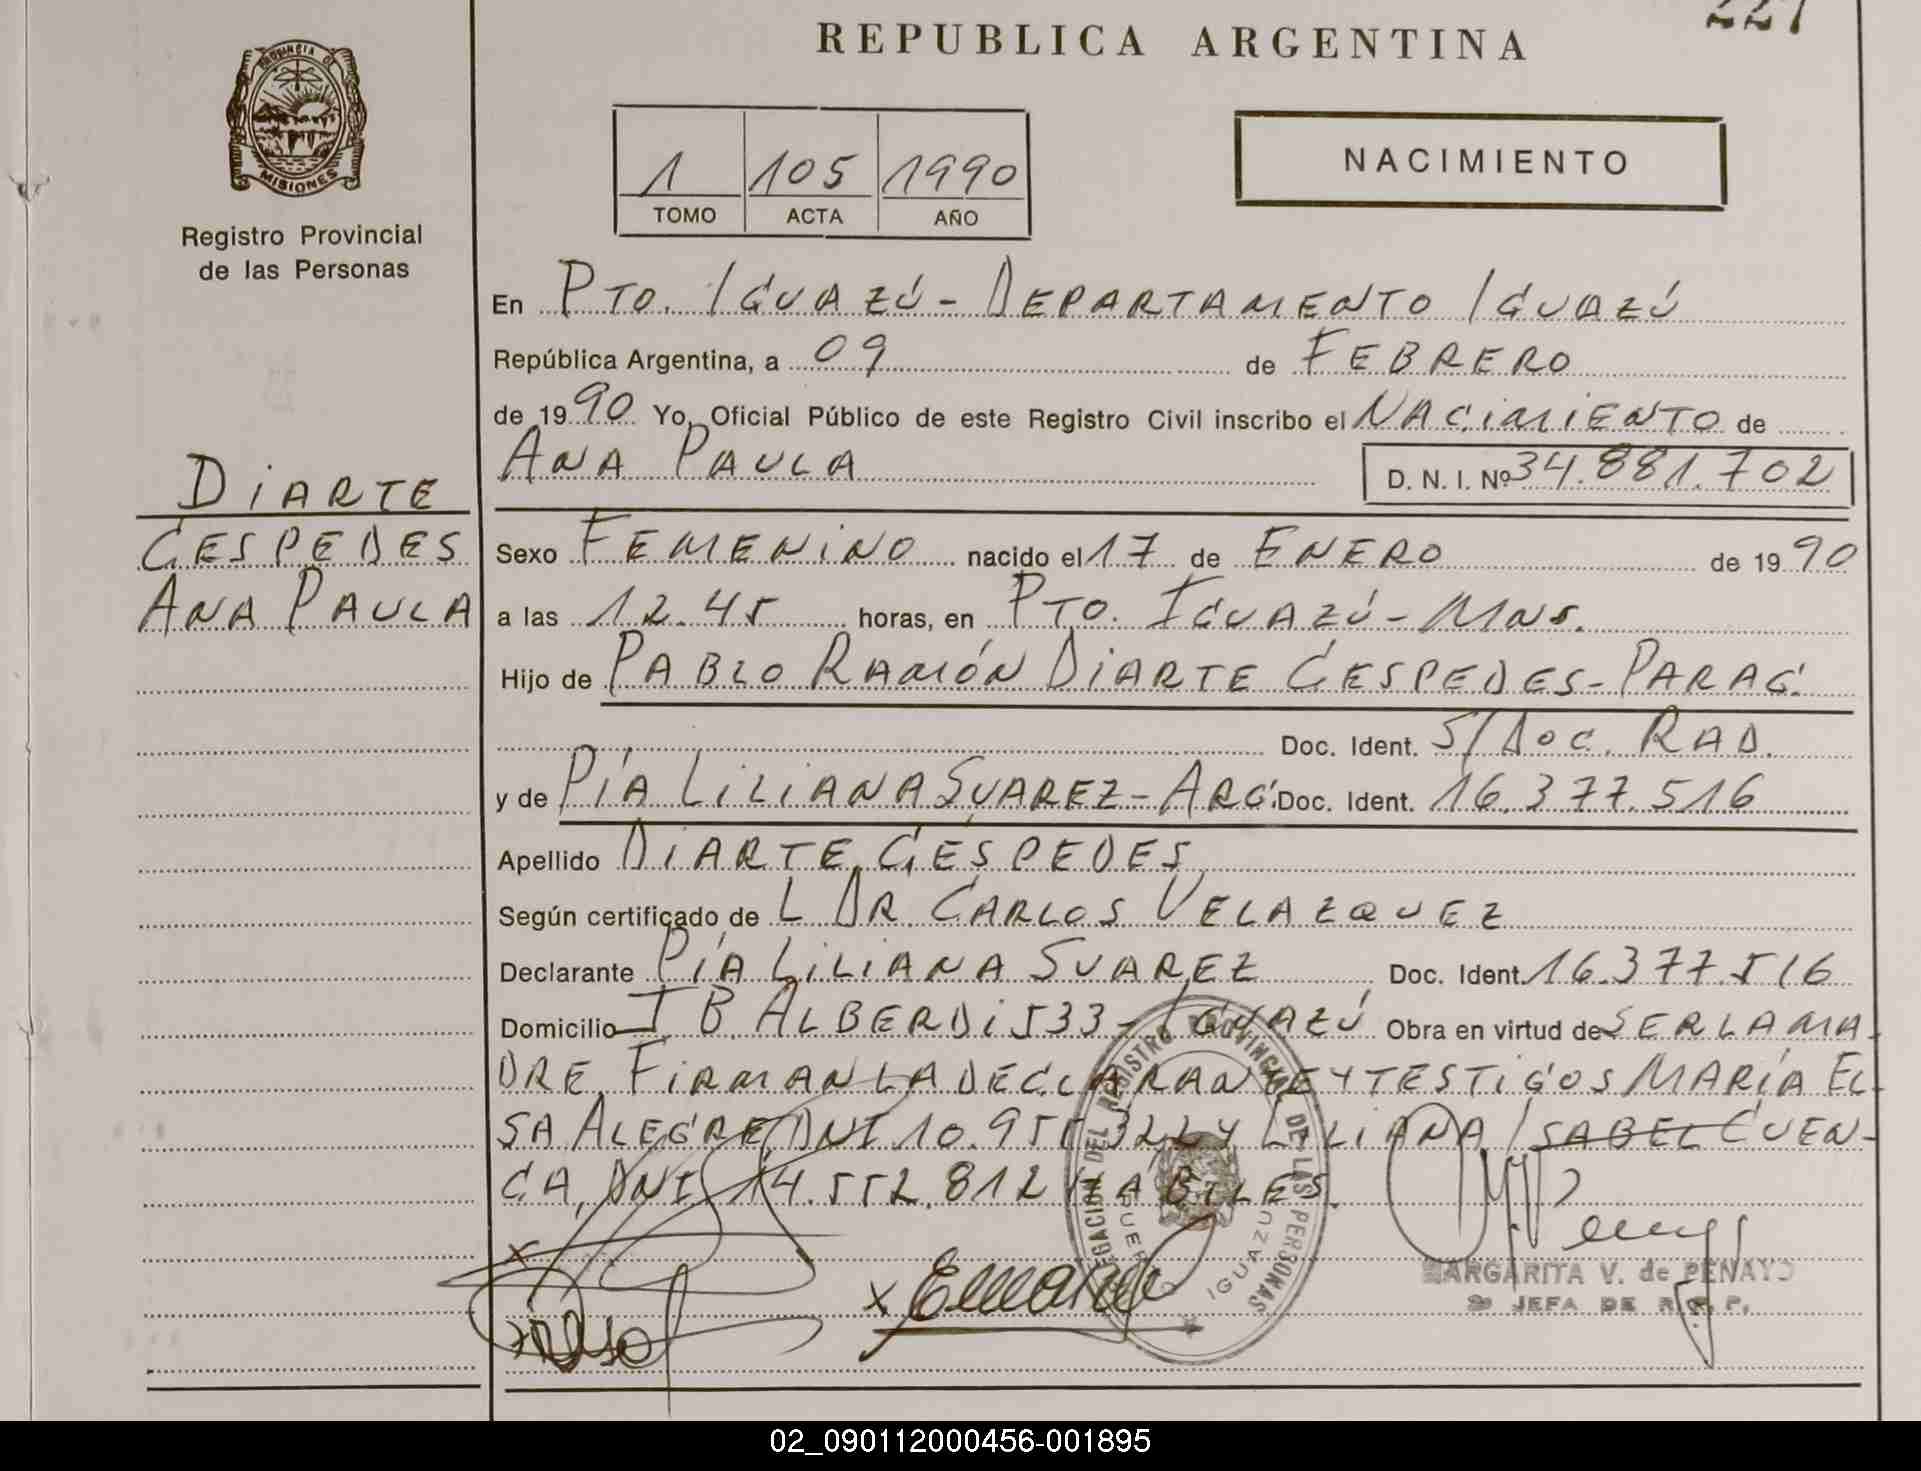 227
REPUBLICA ARGENTINA
PROVINCIA DE
MISIONES
Registro Provincial
de las Personas
1 105 1990
TOMO ACTA AÑO
NACIMIENTO
En PTO. IGUAZÚ - DEPARTAMENTO IGUAZÚ
República Argentina, a 09 de FEBRERO
de 1990 Yo, Oficial Público de este Registro Civil inscribo el NACIMIENTO de
ANA PAULA D. N. I. Nº 34.881.702
DIARTE
CESPEDES
ANA PAULA
Sexo FEMENINO nacido el 17 de ENERO de 1990
a las 12.45 horas, en PTO. IGUAZÚ - MNS.
Hijo de PABLO RAMÓN DIARTE CESPEDES - PARAG.
Doc. Ident. S/DOC. RAD.
y de PÍA LILIANA SUAREZ - ARG. Doc. Ident. 16.377.516
Apellido DIARTE CESPEDES
Según certificado de L DR CARLOS VELAZQUEZ
Declarante PÍA LILIANA SUAREZ Doc. Ident. 16.377.516
Domicilio J B ALBERDI 533 - IGUAZÚ Obra en virtud de SER LA MA-
DRE FIRMAN LA DECLARANTE Y TESTIGOS MARÍA EL-
SA ALEGRE, DNI 10.955.322 Y LILIANA ISABEL CUEN-
CA, DNI 14.552.812 HÁBILES.
DELEGACION DEL REGISTRO PROVINCIAL DE LAS PERSONAS
PUERTO IGUAZU
MARGARITA V. de PENAYO
JEFA DE R. P. P.
02_090112000456-001895